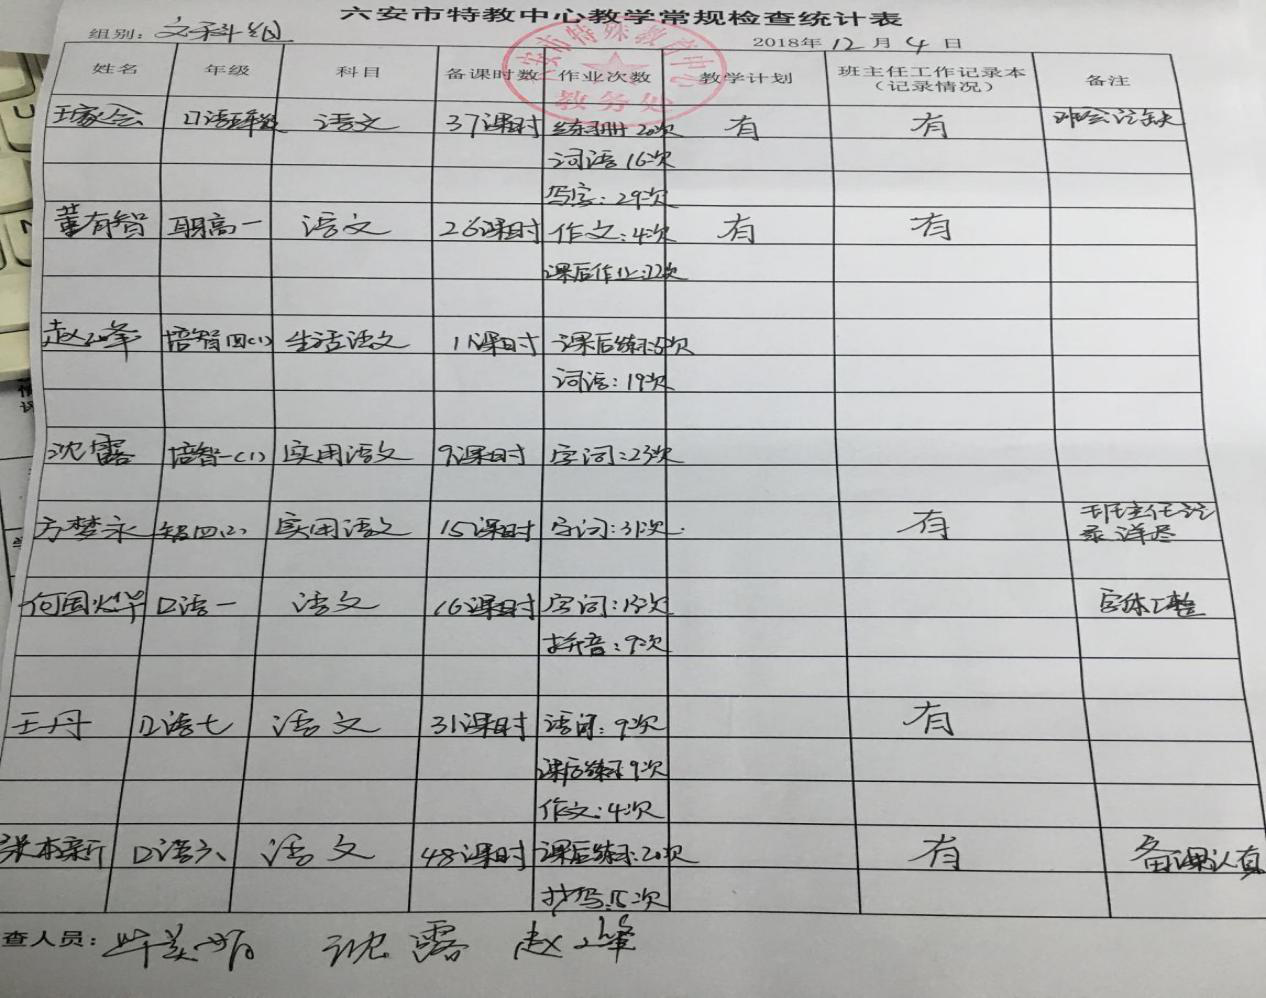 六安市特教中心教学常规检查统计表
组别: 文科组 2018年 12 月 4 日
六安市特殊教育中心
教务处
姓名 年级 科目 备课时数 作业次数 教学计划 班主任工作记录本 备注
(记录情况)
语文 37课时 练习册 20次 有 有
词语 16次
写字: 29次
董有智 职高一 语文 26课时 作文: 4次 有 有
课后作业: 22次
赵 峰 培智四(1) 生活语文 11课时 课后练习 5次
词语: 19次
沈露 培智一(1) 实用语文 9课时 字词: 23次
方梦永 智四(2) 实用语文 15课时 字词: 31次. 有 班主任记
录详尽
何国烨 口语一 语文 16课时 字词: 13次 字体工整
拼音: 9次
王丹 口语七 语文 31课时 9次 有
课后练习 9次
作文: 4次
张本新 口语六 语文 48课时 课后练习: 20次 有 备课认真
抄写: 15次
查人员: 沈露 赵 峰